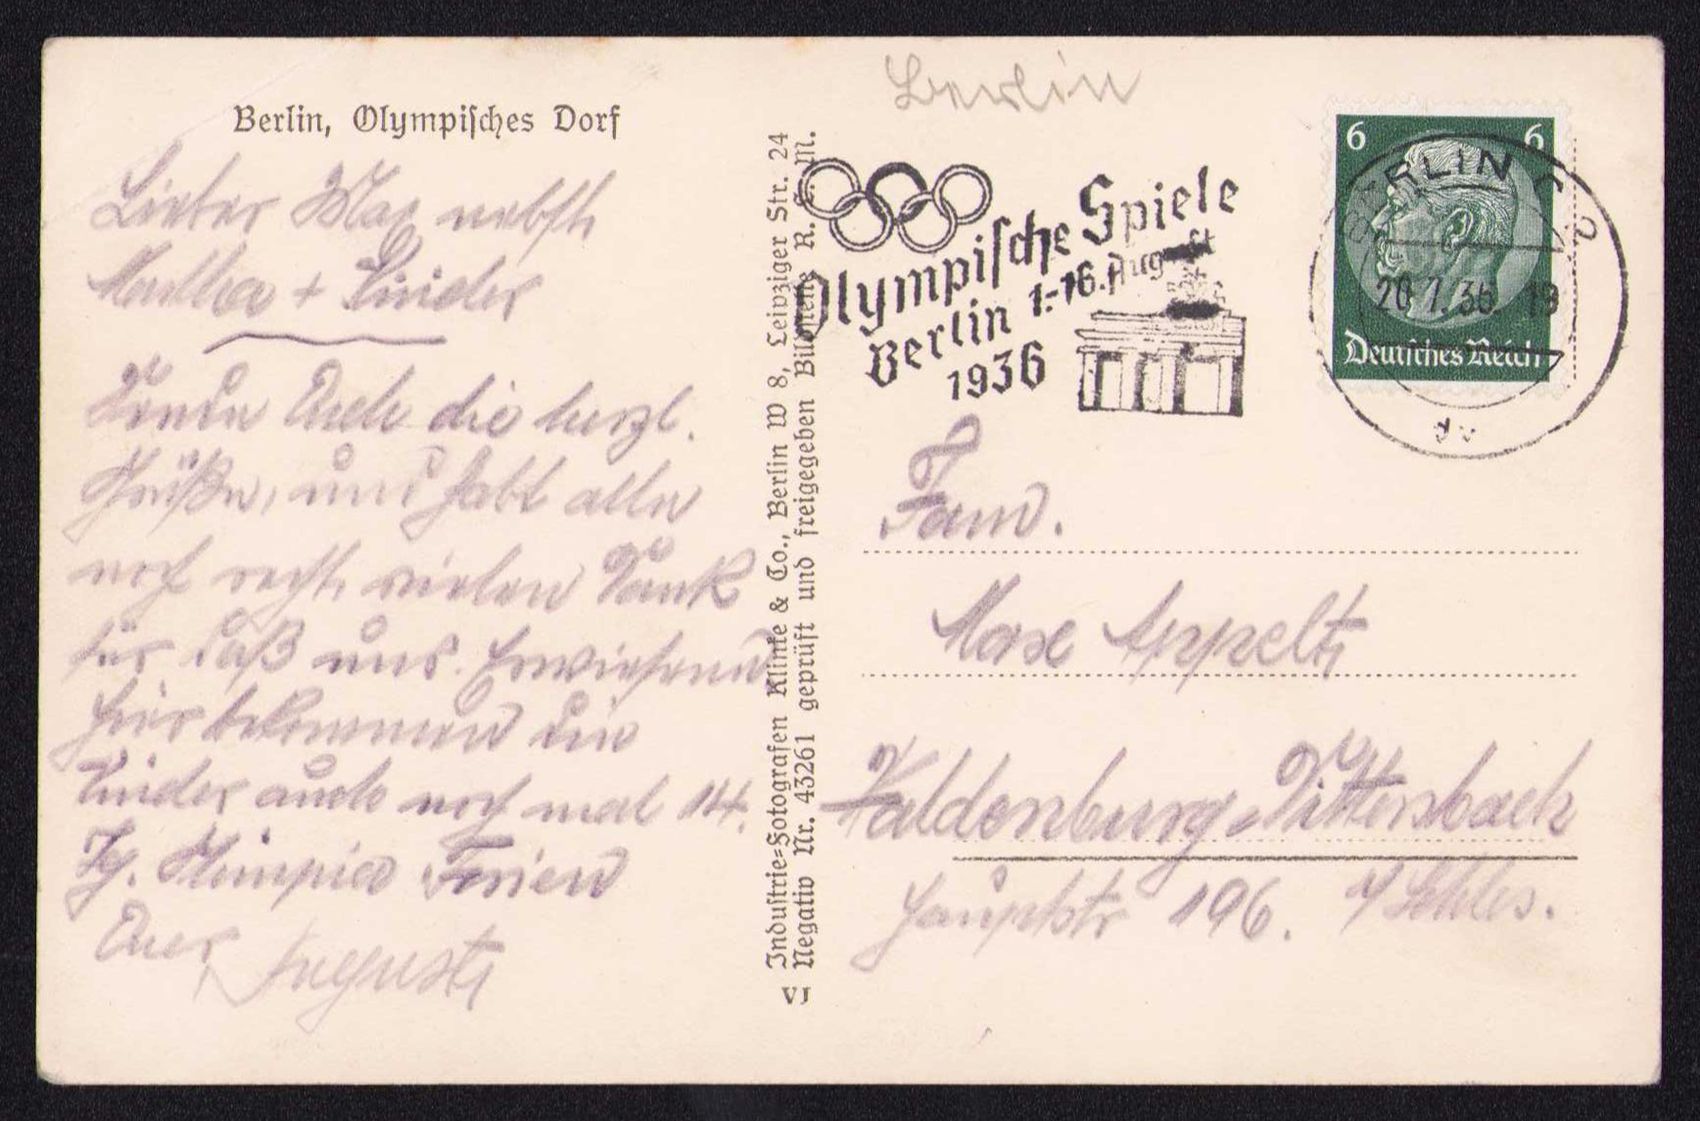 Berlin, Olympisches Dorf
Lieber Max nebst
Martha + Kinder
Sende Euch die herzl.
Grüße, und habt alle
noch recht vielen Dank
für daß uns
Hier bekommen die
Kinder auch noch mal 14.
Tg. Olimpia Ferien
Euer August
Industrie-Fotografen Klinke & Co., Berlin W 8, Leipziger Str. 24
Negativ Nr. 43261 geprüft und freigegeben R. L. M.
VJ
Berlin
Olympische Spiele
Berlin 1.-16. August
1936
6 6
Deutsches Reich
BERLIN C 2
20.7.36 19
dv
Fam.
Max Appelt
Waldenburg-Dittersbach
Hauptstr 196. i/Schles.